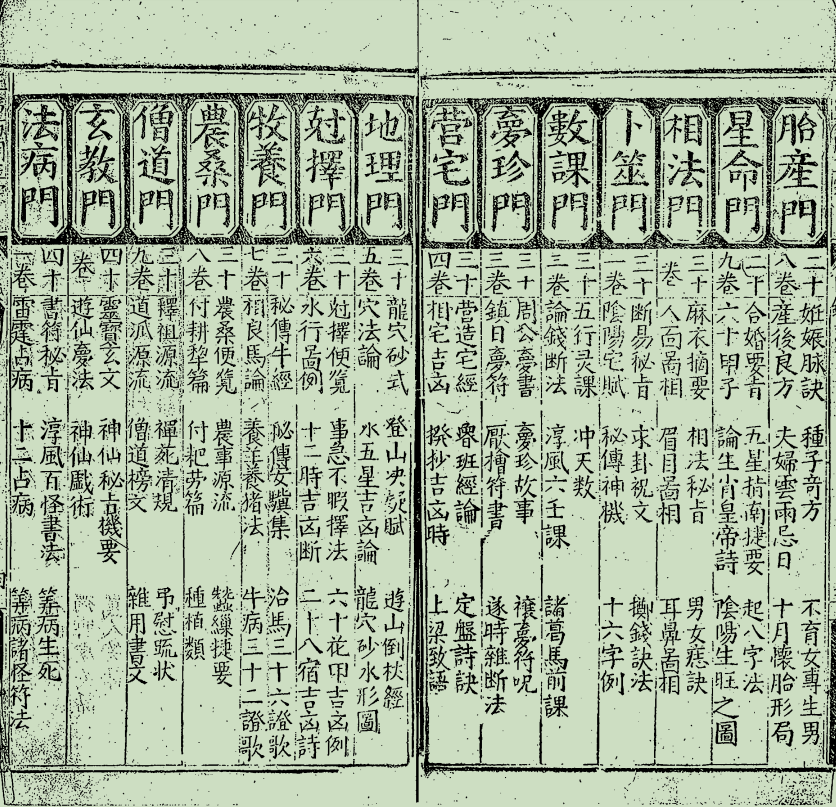 胎産門
二十妊娠脉訣 種子奇方 不育女專生男
八卷産後良方 夫婦雲雨忌日 十月懷胎形局
星命門
二十合婚要旨 五星指南捷要 起八字法
九卷六十甲子 論生肖皇帝詩 陰陽生旺之圖
相法門
三十麻衣摘要 相法秘旨 男女應訣
卷人面啚相 眉目啚相 耳鼻啚相
卜筮門
三十断易秘旨 求卦祝文 擲錢訣法
一卷陰陽宅賦 秘傳神機 十六字例
數課門
三十五行灵課 冲天數
二卷論錢断法 淳風六壬課 諸葛馬前課
夣珍門
三十周公夣書 夣珍故事 禳夣符呪
三卷鎮日夣符 厭禬符書 逐時雜断法
营宅門
三十营造宅經 魯班經論 定盤詩訣
四卷相宅吉凶 揆抄吉凶時 上梁致語
地理門
三十龍穴砂式 登山决疑賦 遊山倒杖經
五卷穴法論 水五星吉凶論 龍穴砂水形圖
尅擇門
三十尅擇便覧 事急不暇擇法 六十花甲吉凶例
六卷水行啚例 十二時吉凶断 二十八宿吉凶詩
牧養門
三十秘傳牛經 秘傳安驥集 治馬三十六證歌
七卷相良馬論 養羊養猪法 牛病三十二證歌
農桑門
三十農桑便覧 農事源流 蠶繅捷要
八卷付耕犂篇 付耙劳篇 種植類
僧道門
三十釋祖源流 禪苑清規 吊慰疏状
九卷道派源流 僧道榜文 雜用書文
玄教門
四十靈寶玄文 神仙秘占機要
卷遊仙夣法 神仙戲術
法病門
四十書符秘旨 淳風百怪書法 筭病生死
一卷雷霆占病 十二占病 筭病諸怪符法